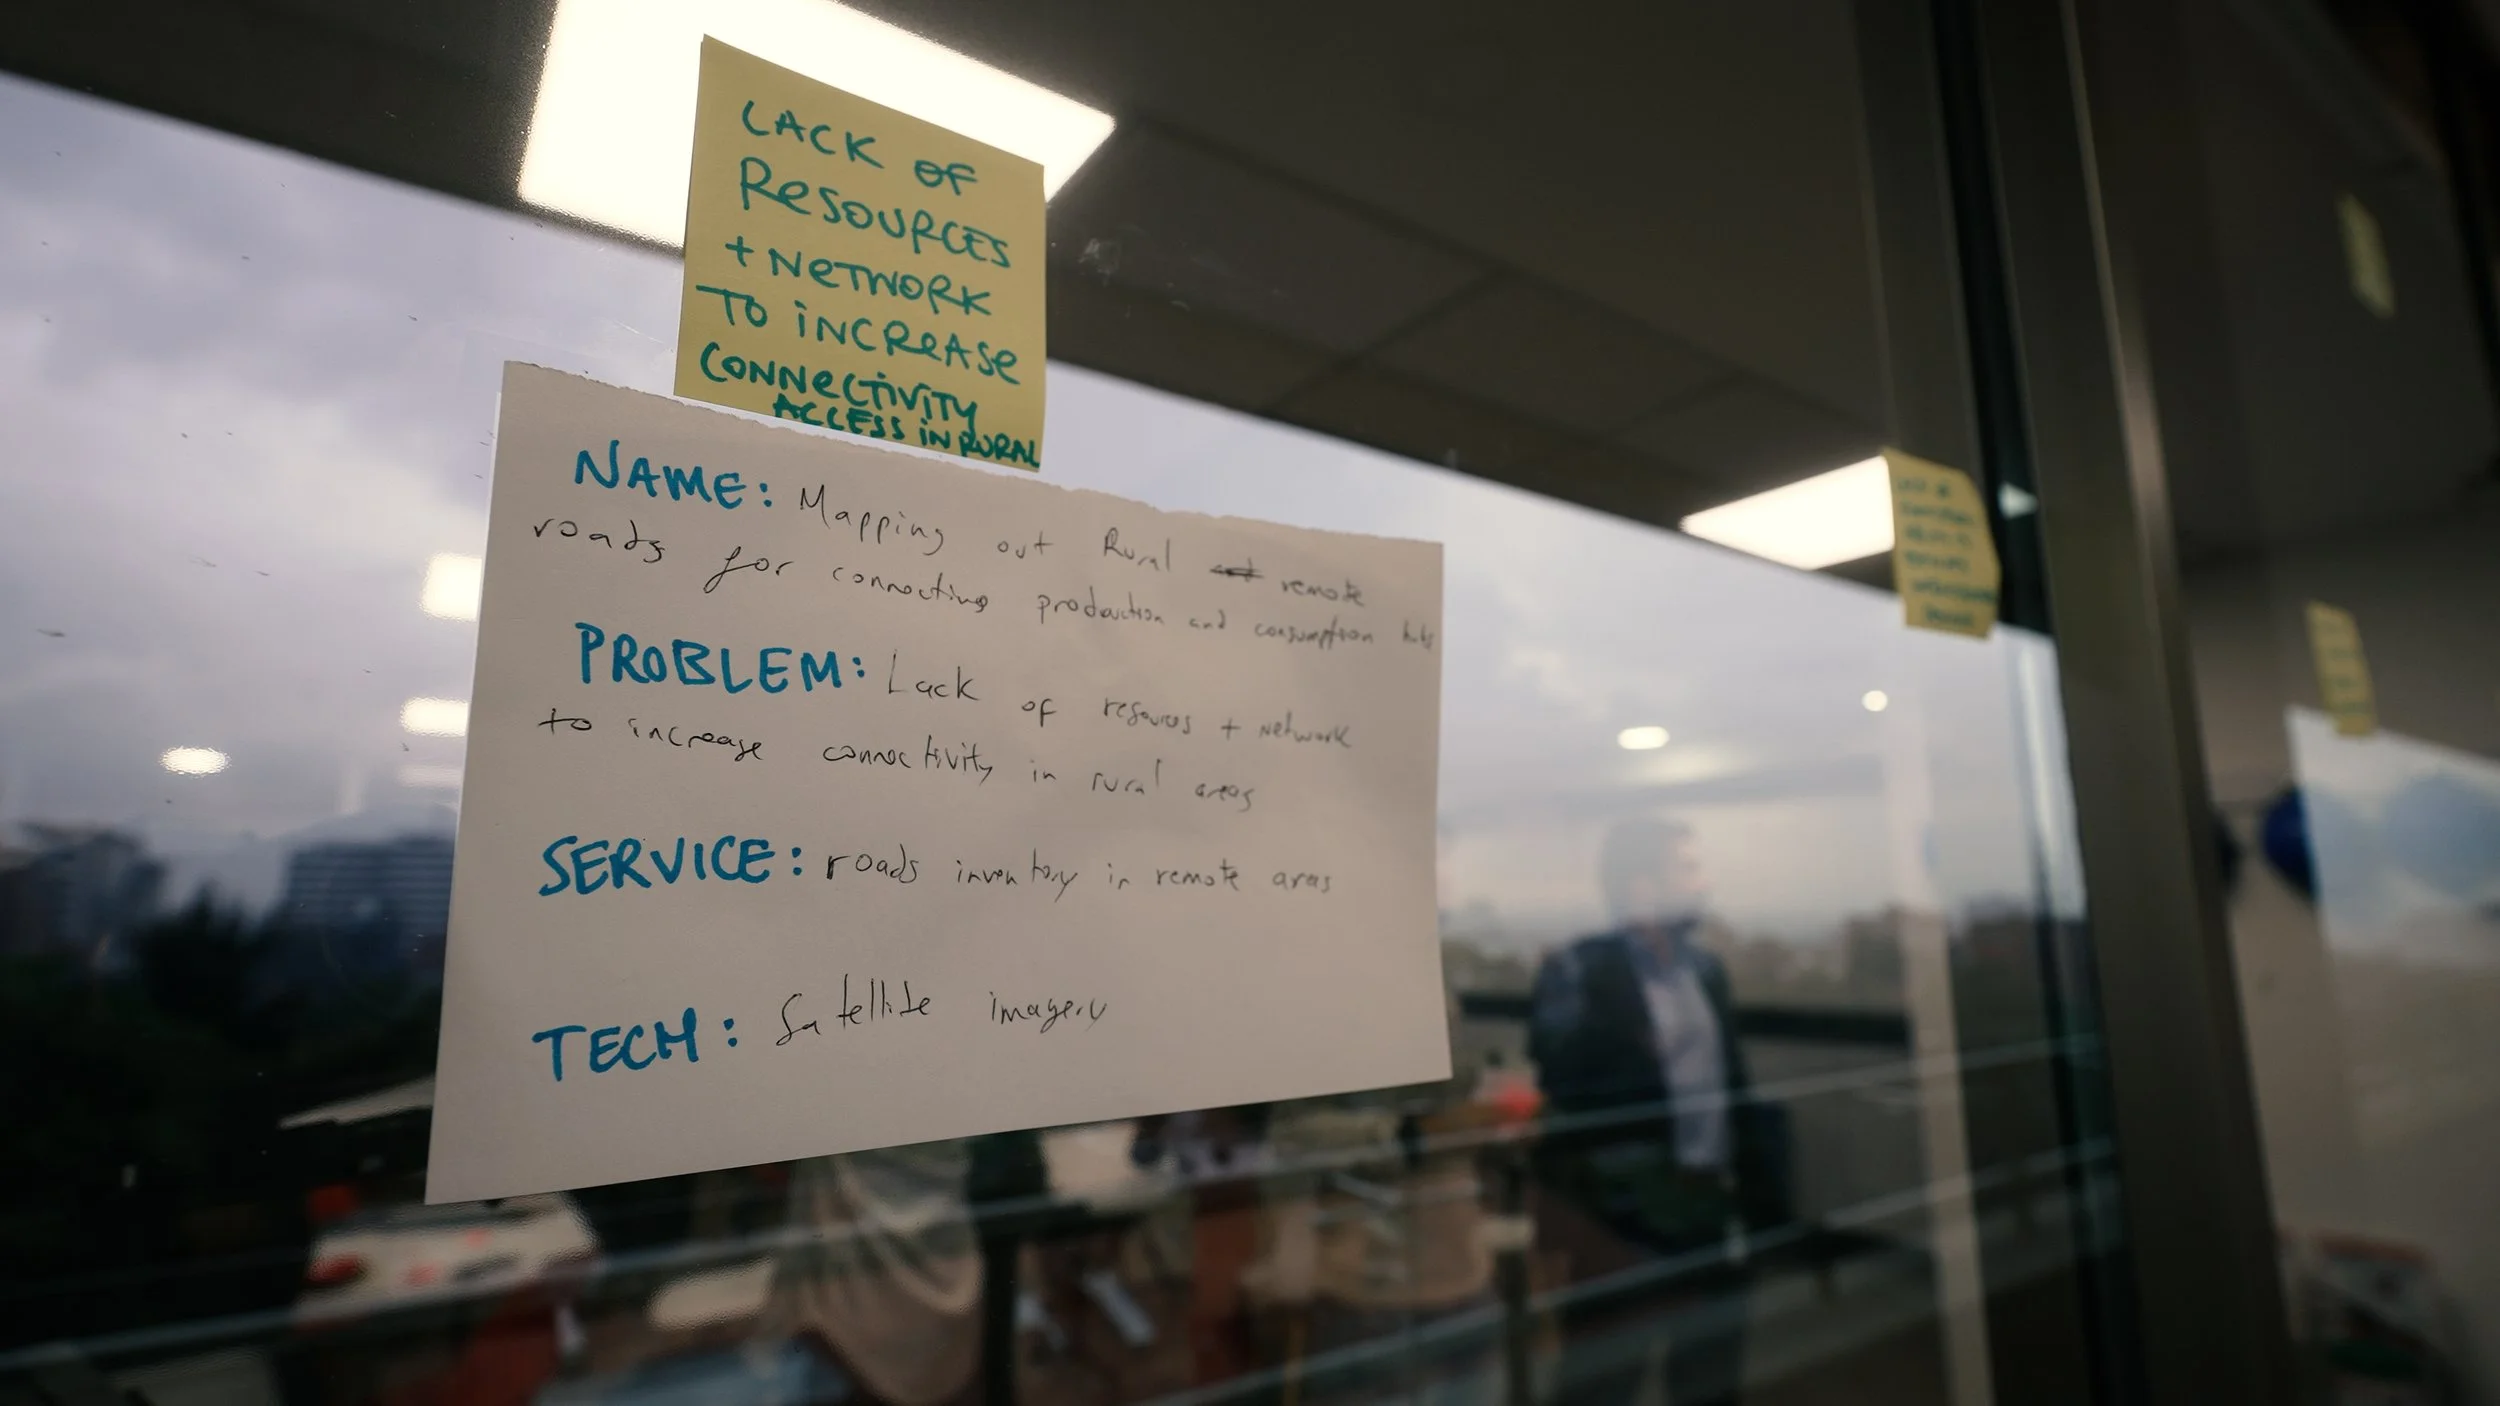 LACK OF
RESOURCES
+ NETWORK
TO INCREASE
CONNECTIVITY
ACCESS IN RURAL
NAME: Mapping out Rural remote
roads for connecting production and consumption hubs
PROBLEM: Lack of resources + network
to increase connectivity in rural areas
SERVICE: roads inventory in remote areas
TECH: Satellite imagery